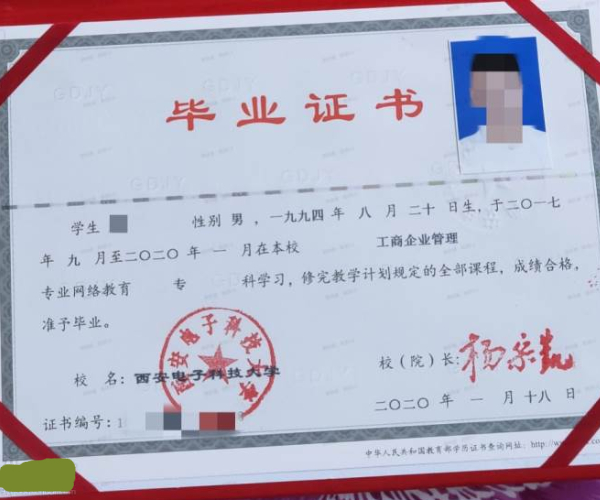 毕业证书
学生 性别 男 ，一九九四 年 八 月 二十 日生，于二〇一七
年 九 月至二〇二〇 年 一 月在本校 工商企业管理
专业网络教育 专 科学习，修完教学计划规定的全部课程，成绩合格，
准予毕业。
西安电子科技大学
校 名：西安电子科技大学
校（院）长：杨宗凯
证书编号：1
二〇二〇 年 一 月 十八 日
中华人民共和国教育部学历证书查询网址：http://w